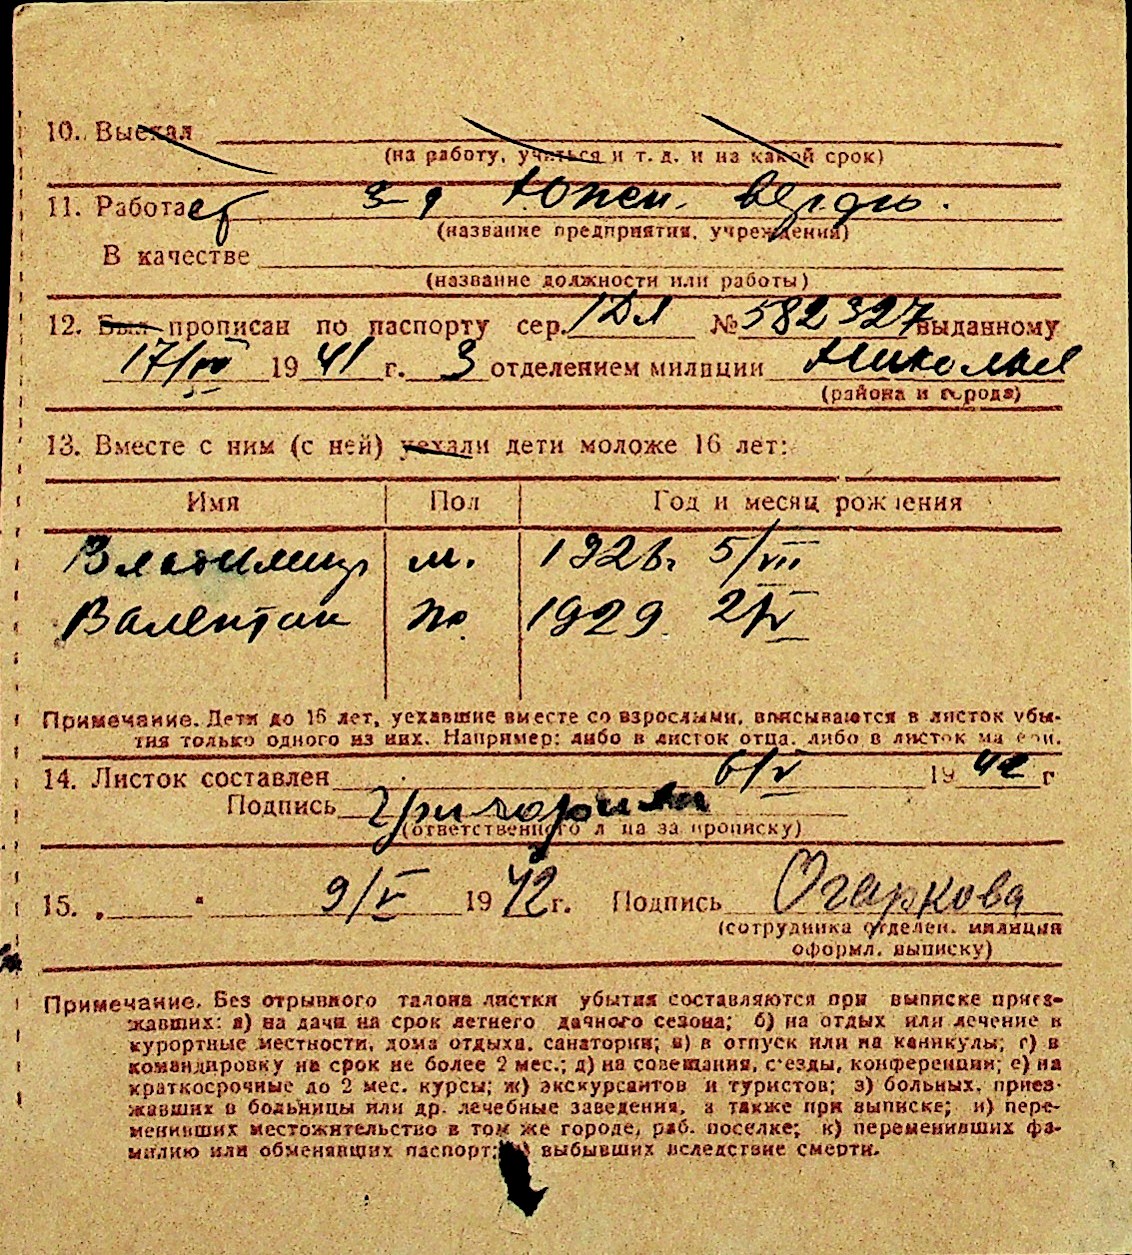 10. Выехал
(на работу, учиться и т. д. и на какой срок)
11. Работает з-д Южн. верфь.
(название предприятия, учреждения)
В качестве
(название должности или работы)
12. Был прописан по паспорту сер. № 582327 выданному
17/ 1941 г. 3 отделением милиции
(района и города)
13. Вместе с ним (с ней) уехали дети моложе 16 лет:
Имя Пол Год и месяц рождения
Владимир м. 1926. 5/VII
Валентин 1929 2/IV
Примечание. Дети до 16 лет, уехавшие вместе со взрослыми, вписываются в листок убы-
тия только одного из них. Например: либо в листок отца, либо в листок матери.
14. Листок составлен 6/V 1942 г
Подпись
(ответственного лица за прописку)
15. „ " 9/V 1942 г. Подпись Огаркова
(сотрудника отделен. милиции
оформл. выписку)
Примечание. Без отрывного талона листки убытия составляются при выписке приез-
жавших: а) на дачи на срок летнего дачного сезона; б) на отдых или лечение в
курортные местности, дома отдыха, санатории; в) в отпуск или на каникулы; г) в
командировку на срок не более 2 мес.; д) на совещания, съезды, конференции; е) на
краткосрочные до 2 мес. курсы; ж) экскурсантов и туристов; з) больных, приез-
жавших в больницы или др. лечебные заведения, а также при выписке; и) пере-
менивших местожительство в том же городе, раб. поселке; к) переменивших фа-
милию или обменявших паспорт; выбывших вследствие смерти.